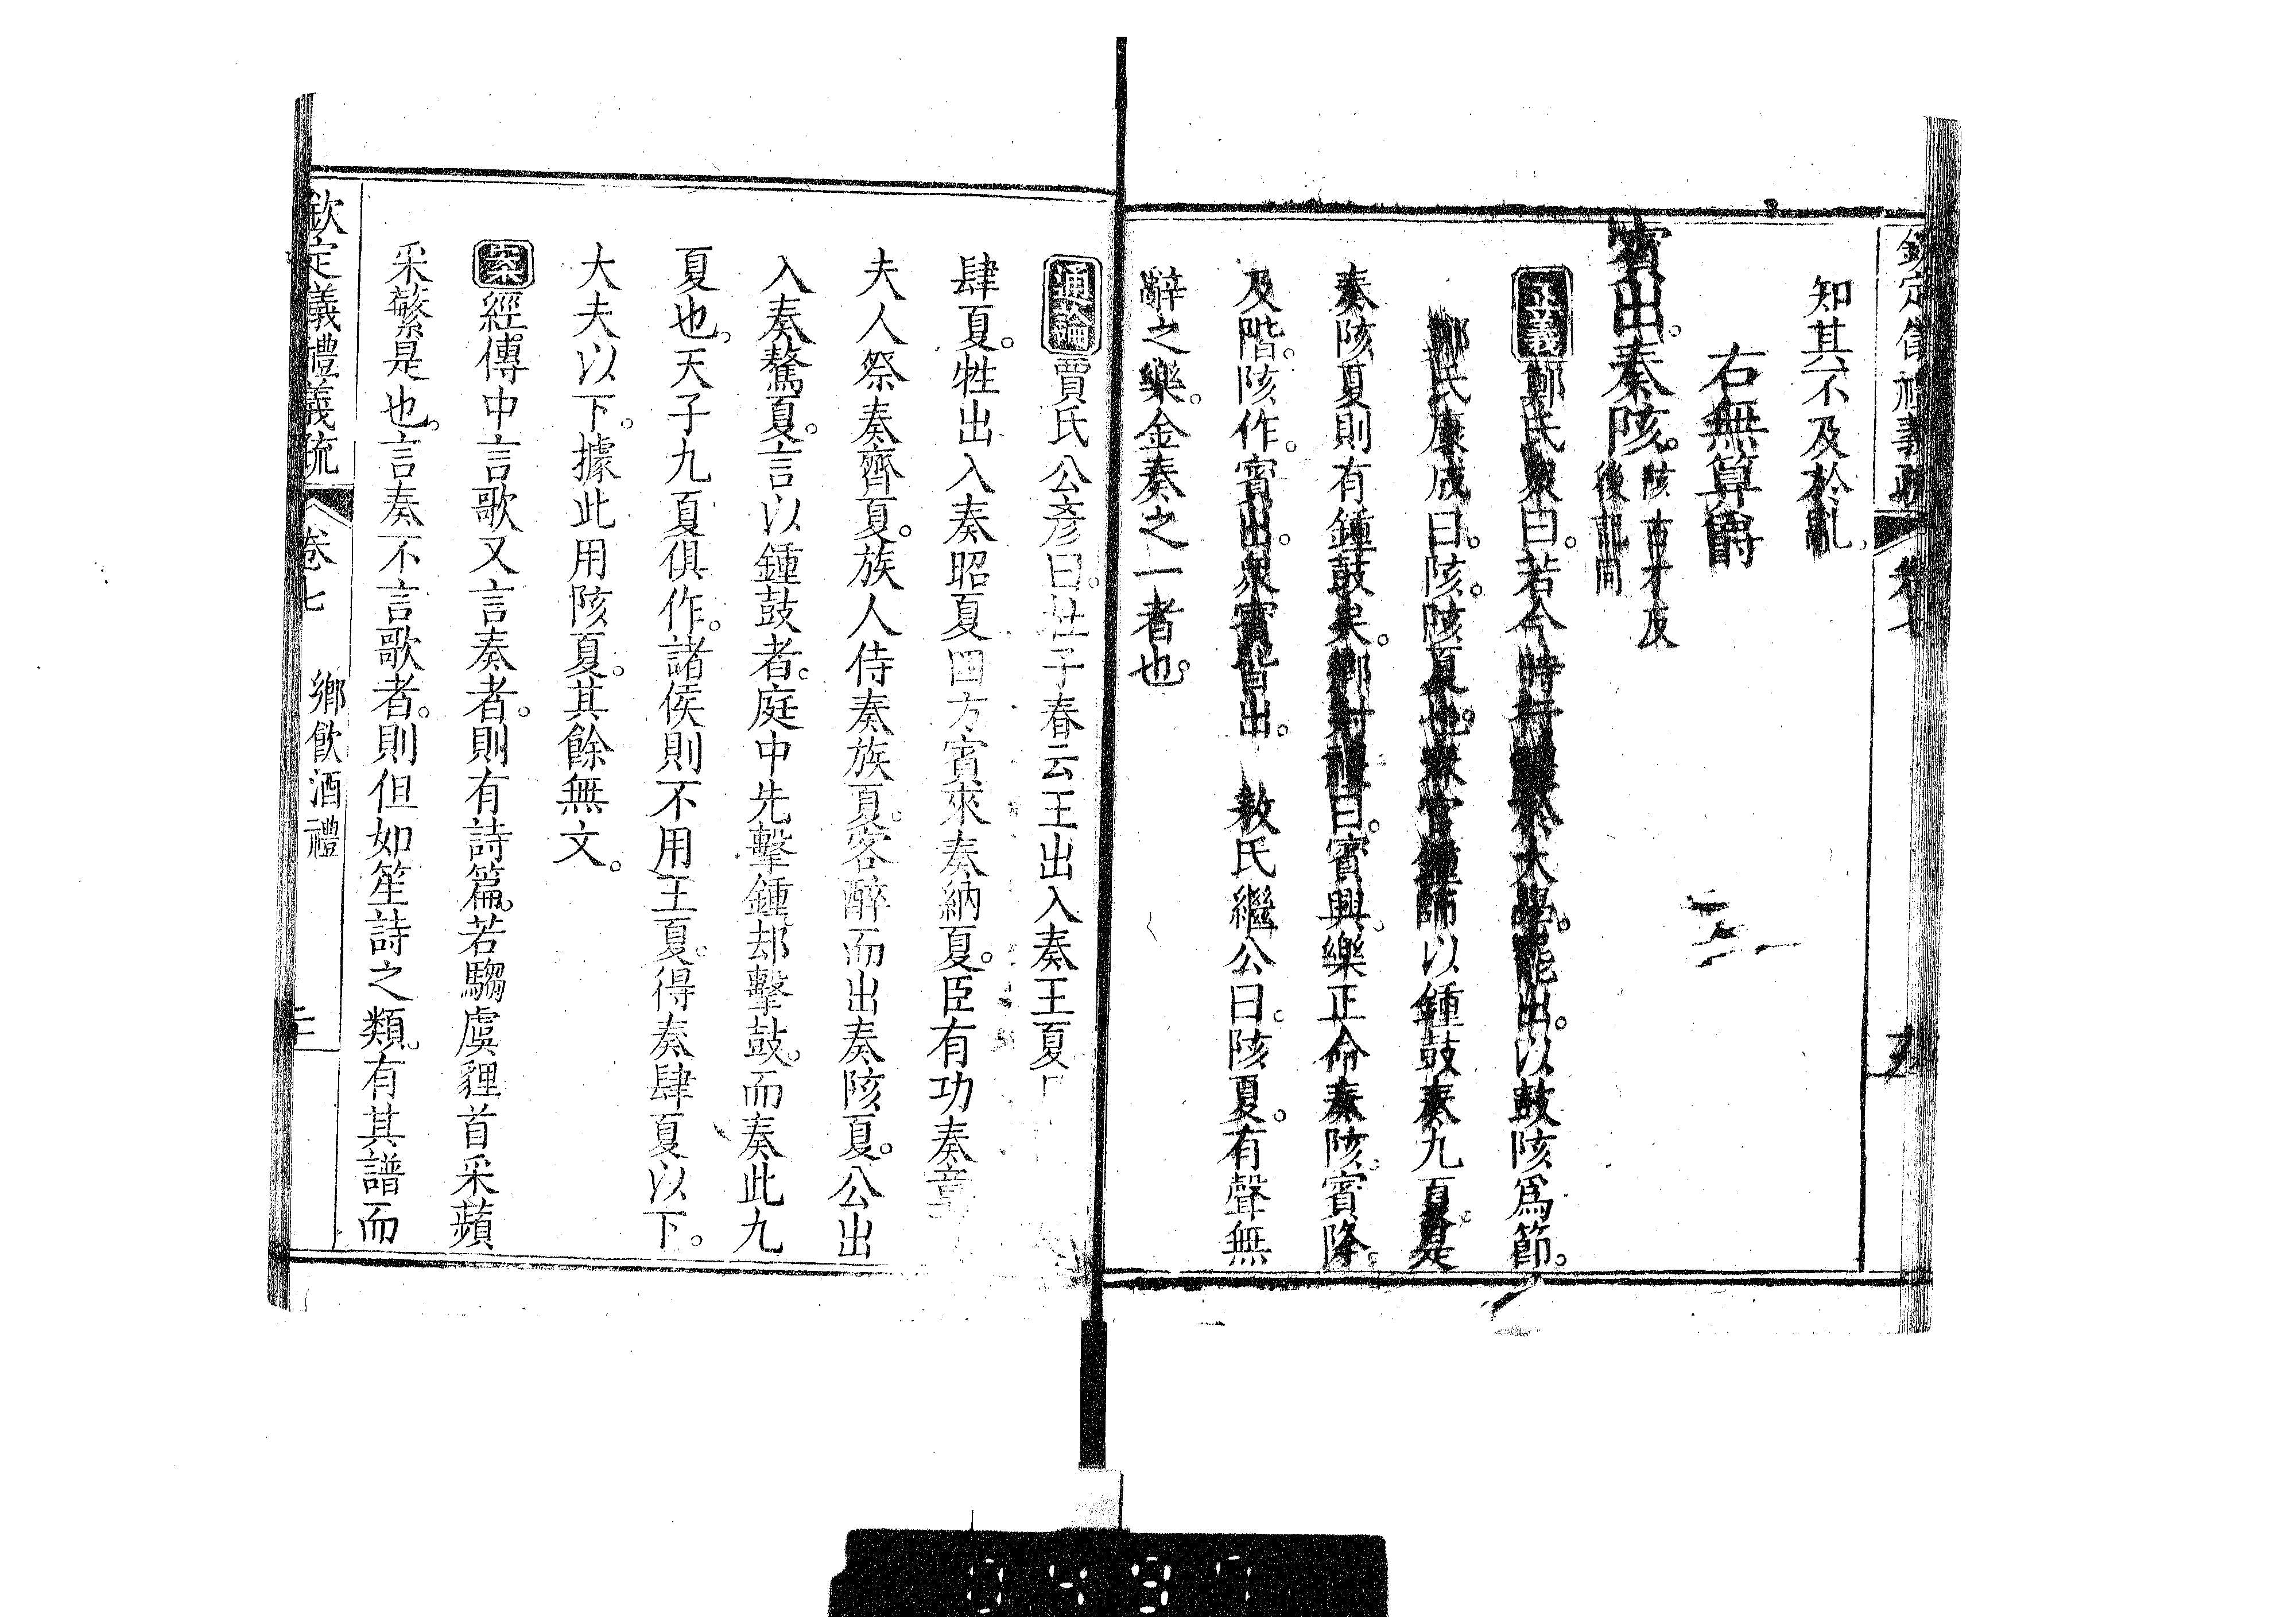 欽定儀禮義疏　卷七
知其不及於亂。
右無算爵
賓出。奏陔。陔古才反
後記同
正義鄭氏衆曰。若今時行禮於大學。罷出。以鼓陔爲節。
鄭氏康成曰。陔。陔夏也。以鍾鼓奏九夏。是
奏陔夏則有鍾鼓矣。鄉射禮曰。賓興。樂正命奏陔。賓降
及階。陔作。賓出。衆賓皆出。　敖氏繼公曰。陔夏。有聲無
辭之樂。金奏之一者也。
通論賈氏公彥曰。杜子春云王出入奏王夏
肆夏。牲出入奏昭夏四方賓來奏納夏。臣有功奏章
夫人祭奏齊夏。族人侍奏族夏。客醉而出奏陔夏。公出
入奏驁夏。言以鍾鼓者。庭中先擊鍾却擊鼓。而奏此九
夏也。天子九夏俱作。諸侯則不用王夏。得奏肆夏以下。
大夫以下。據此用陔夏。其餘無文。
案經傳中言歌又言奏者。則有詩篇。若騶虞貍首采蘋
采蘩是也。言奏不言歌者。則但如笙詩之類。有其譜而
欽定儀禮義疏　卷七　鄉飲酒禮
0497